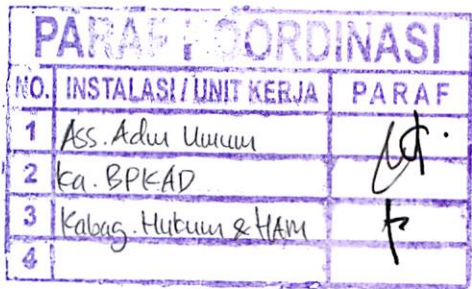 PARAF KOORDINASI
NO. INSTALASI / UNIT KERJA PARAF
1 Ass. Adm Umum
2 Ka. BPKAD
3 Kabag. Hukum & HAM
4